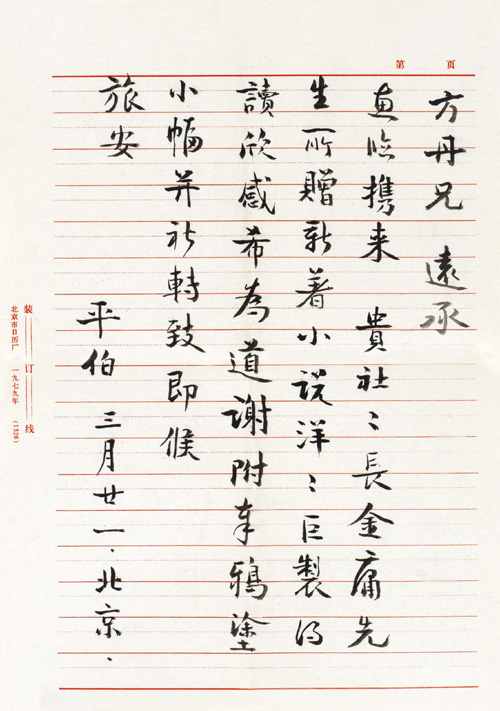 第 頁
方丹兄 遠承
惠臨携来 貴社〻長金庸先
生所贈新著小説洋〻巨製得
讀欣感希為道謝附奉鴉塗
小幅并祈轉致即候
旅安
平伯 三月廿一·北京·
装 订 线
北京市日历厂 一九七九年 (1326)